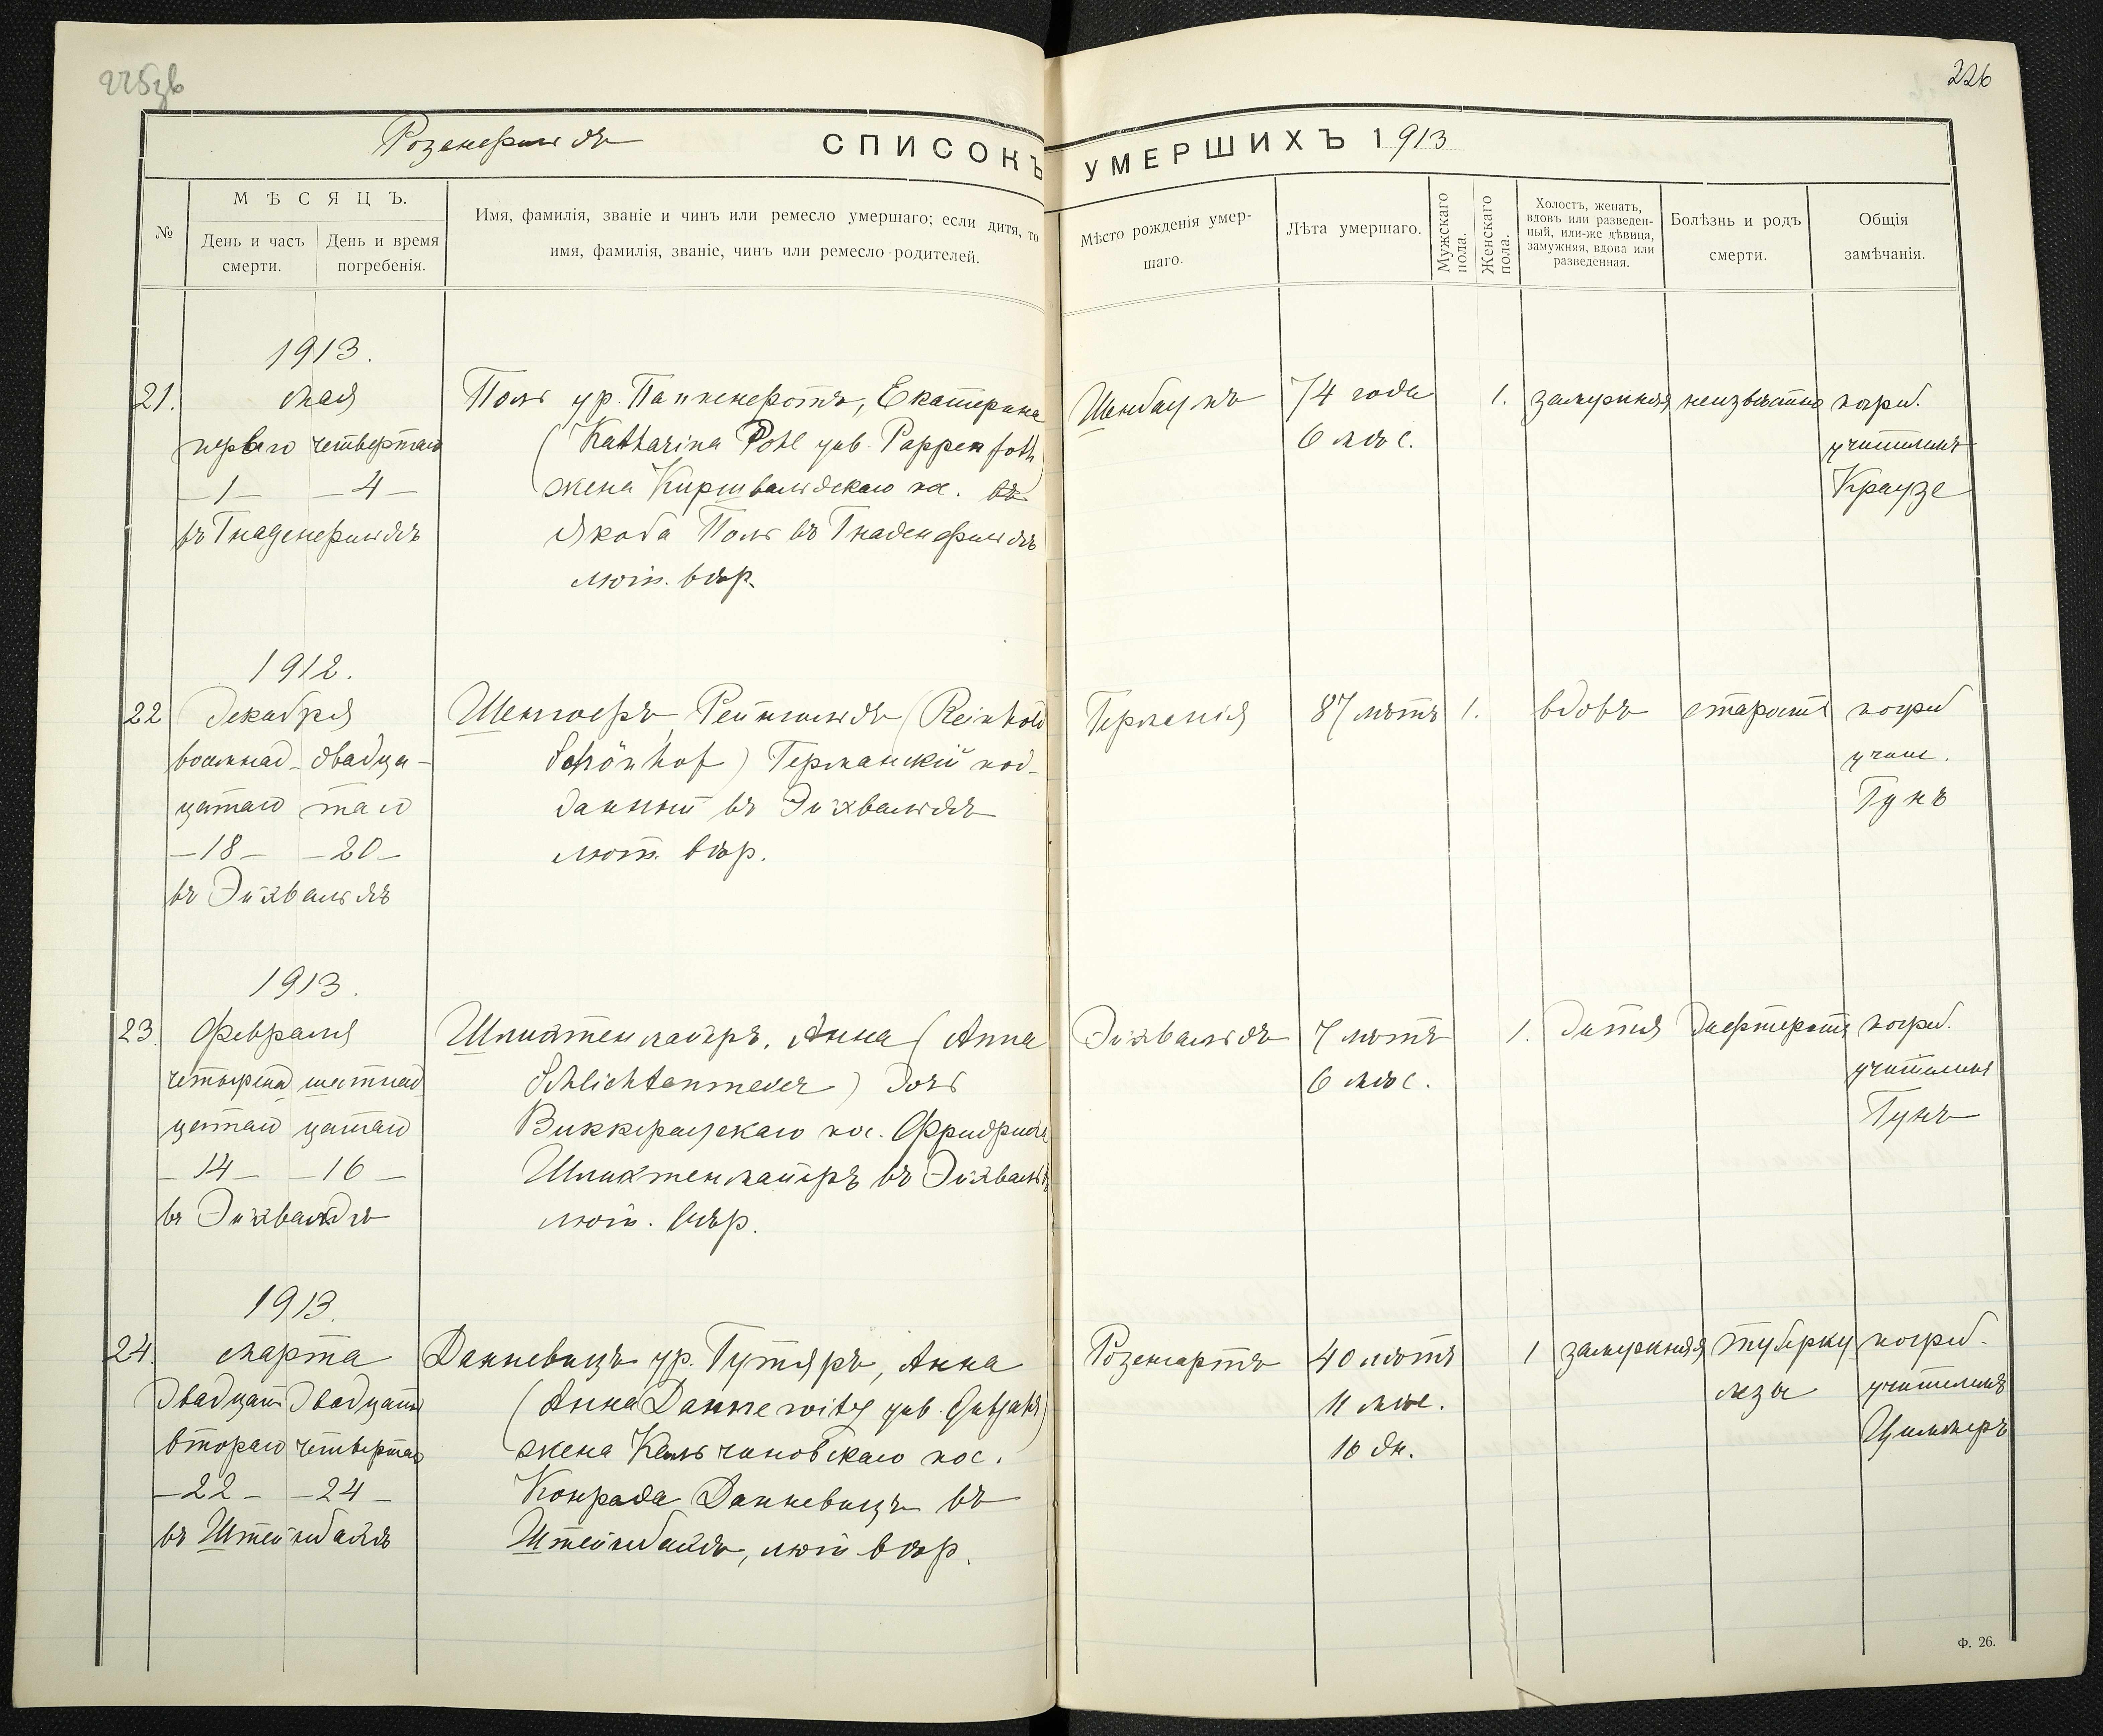 225об
226
Розенфельдъ
СПИСОКЪ УМЕРШИХЪ 1913
№
МѢСЯЦЪ.
День и часъ смерти.
День и время погребенія.
Имя, фамилія, званіе и чинъ или ремесло умершаго; если дитя, то
имя, фамилія, званіе, чинъ или ремесло родителей.
Мѣсто рожденія умер-
шаго.
Лѣта умершаго.
Мужскаго пола.
Женскаго пола.
Холостъ, женатъ,
вдовъ или разведен-
ный, или-же дѣвица,
замужняя, вдова или
разведенная.
Болѣзнь и родъ
смерти.
Общія
замѣчанія.
1913.
21. мая
перваго четвертаго
—1— —4—
въ Гнаденфельдѣ
Поль ур. Паппенфотъ, Екатерина
(Katharina Pohl geb. Pappenfoth)
жена Киршвальдскаго пос.
Якоба Поль въ Гнаденфельдѣ
лют. вѣр.
Шенбаумъ
74 года
6 мѣс.
1.
замужняя
неизвѣстно
погреб.
учителемъ
Краузе
1912.
22 декабря
восемнад- двадца-
цатаго таго
—18— —20—
въ Эйхвальдѣ
Шенгофъ Рейнгольдъ (Reinhold
Schönhof) Германскій под-
данный въ Эйхвальдѣ
лют. вѣр.
Германія
87 лѣтъ
1.
вдовъ
старость
погреб
учит.
Гунъ
1913.
23. февраля
четырнад шестнад
цатаго цатаго
—14— —16—
въ Эйхвальдѣ
Шлихтенмайеръ, Анна (Anna
Schlichtenmeier) дочь
Виккераускаго пос. Фридриха
Шлихтенмайеръ въ Эйхвальдѣ
лют. вѣр.
Эйхвальдъ
7 лѣтъ
6 мѣс.
1.
дитя
дифтеритъ
погреб.
учителемъ
Гунъ
1913.
24. марта
двадцать двадцать
второго четвертаго
—22— —24—
въ Штейнбахѣ
Данневицъ ур. Гутяръ, Анна
(Анна Dannewitz geb. Gutjahr)
жена Кальчиновскаго пос.
Конрада Данневицъ въ
Штейнбахѣ, лют вѣр.
Розенгартъ
40 лѣтъ
11 мѣс.
16 дн.
1
замужняя
туберку
лезъ
погреб.
учителемъ
Цильмеръ
Ф. 26.